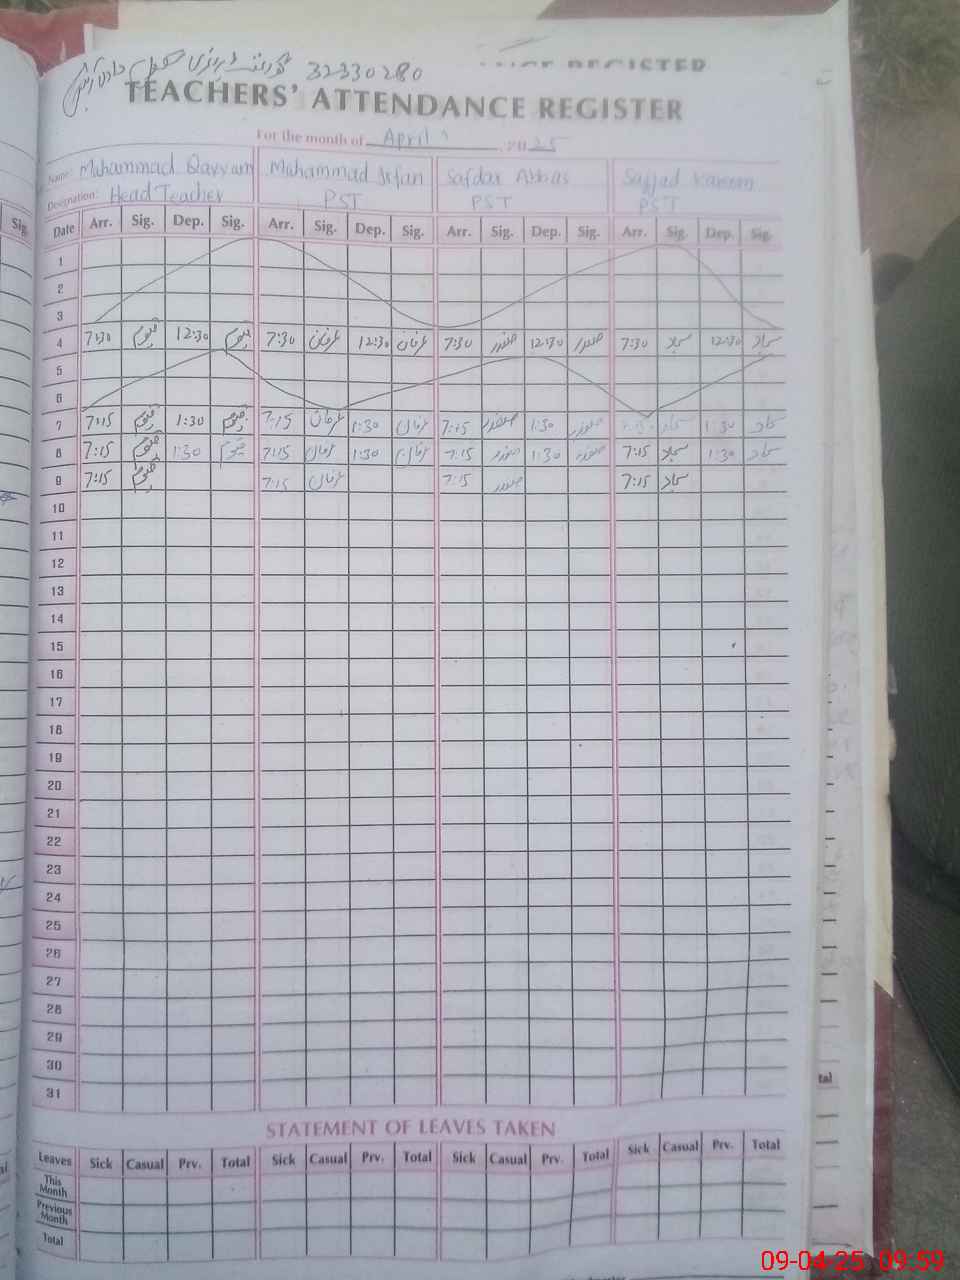 گورنمنٹ پرائمری سکول 32330280
TEACHERS' ATTENDANCE REGISTER
For the month of April 2025
Name: Muhammad Qayyam Muhammad Irfan Safdar Abbas Sajjad Kareem
Designation: Head Teacher PST PST PST
Date Arr. Sig. Dep. Sig. Arr. Sig. Dep. Sig. Arr. Sig. Dep. Sig. Arr. Sig. Dep. Sig.
1
2
3
4 7:30 قیوم 12:30 قیوم 7:30 عرفان 12:30 عرفان 7:30 صفدر 12:30 صفدر 7:30 سجاد 12:30 سجاد
5
6
7 7:15 قیوم 1:30 قیوم 7:15 عرفان 1:30 عرفان 7:15 صفدر 1:30 صفدر 7:15 سجاد 1:30 سجاد
8 7:15 قیوم 1:30 قیوم 7:15 عرفان 1:30 عرفان 7:15 صفدر 1:30 صفدر 7:15 سجاد 1:30 سجاد
9 7:15 قیوم 7:15 عرفان 7:15 صفدر 7:15 سجاد
10
11
12
13
14
15
16
17
18
19
20
21
22
23
24
25
26
27
28
29
30
31
STATEMENT OF LEAVES TAKEN
Leaves Sick Casual Prv. Total Sick Casual Prv. Total Sick Casual Prv. Total Sick Casual Prv. Total
This Month
Previous Month
Total
09-04-25 09:59